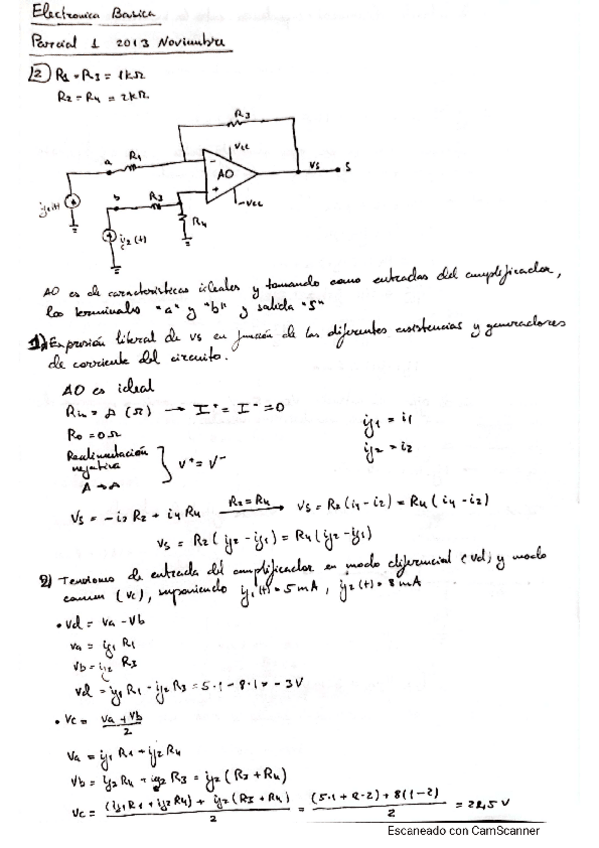 Electronica Basica
Parcial 1 2013 Noviembre
2) R1 = R3 = 1kΩ
R2 = R4 = 2kΩ
R3
a
R1
Vcc
AO
Vs
S
b
R3
-Vcc
R4
ig2(t)
AO es de caracteristicas ideales y tomando como entradas del amplificador,
los terminales "a" y "b" y salida "S"
1) Expresión literal de vs en función de las diferentes resistencias y generadores
de corriente del circuito.
AO es ideal
Rin = ∞ (Ω) → I⁺ = I⁻ = 0
ig1 = i1
Ro = 0Ω
ig2 = i2
Realimentación
negativa } V⁺ = V⁻
A → ∞
Vs = -i2 R2 + i4 R4 R2 = R4 → Vs = R2 (i4 - i2) = R4 (i4 - i2)
Vs = R2 (ig2 - ig1) = R4 (ig2 - ig1)
2) Tensiones de entrada del amplificador en modo diferencial (Vd) y modo
comun (Vc), suponiendo ig1(t) = 5 mA, ig2(t) = 8 mA
• Vd = Va - Vb
Va = ig1 R1
Vb = ig2 R3
Vd = ig1 R1 - ig2 R3 = 5·1 - 8·1 = -3 V
• Vc = (Va + Vb) / 2
Va = ig1 R1 + ig2 R4
Vb = ig2 R4 + ig2 R3 = ig2 (R3 + R4)
Vc = ((ig1 R1 + ig2 R4) + ig2 (R3 + R4)) / 2 = / 2 = 22,5 V
Escaneado con CamScanner